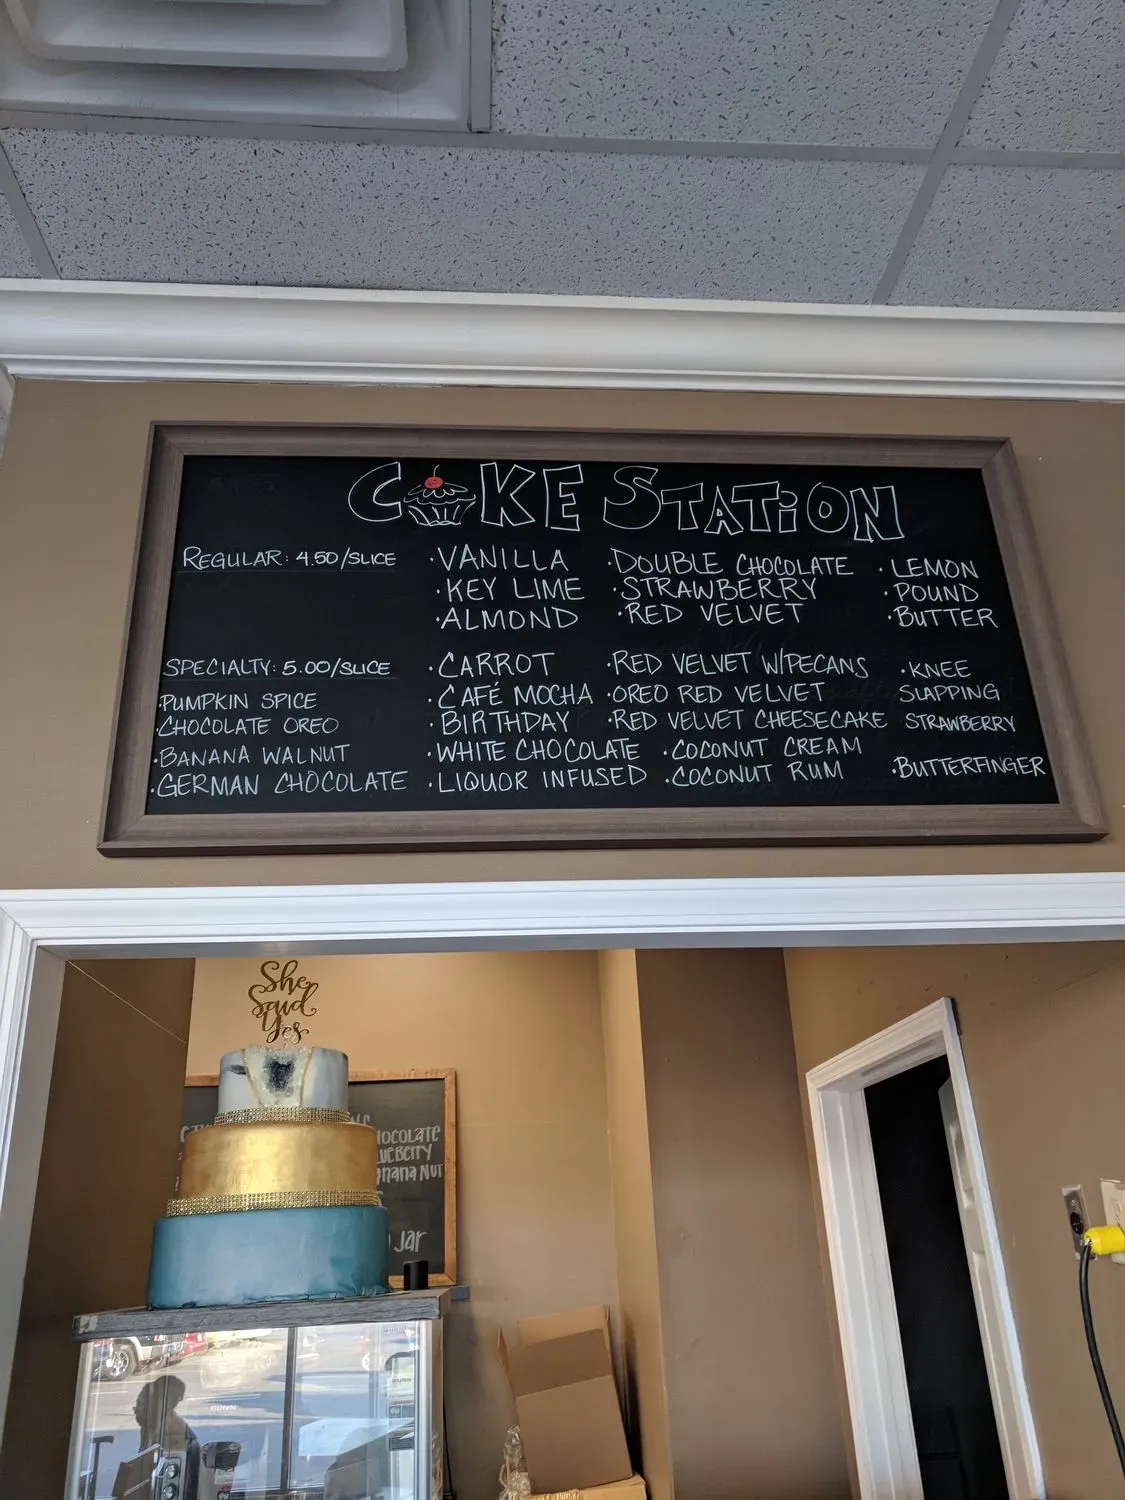 CAKE STATION
REGULAR: 4.50/SLICE
·VANILLA
·KEY LIME
·ALMOND
·DOUBLE CHOCOLATE
·STRAWBERRY
·RED VELVET
·LEMON
·POUND
·BUTTER
SPECIALTY: 5.00/SLICE
·PUMPKIN SPICE
·CHOCOLATE OREO
·BANANA WALNUT
·GERMAN CHOCOLATE
·CARROT
·CAFÉ MOCHA
·BIRTHDAY
·WHITE CHOCOLATE
·LIQUOR INFUSED
·RED VELVET W/PECANS
·OREO RED VELVET
·RED VELVET CHEESECAKE
·COCONUT CREAM
·COCONUT RUM
·KNEE
SLAPPING
STRAWBERRY
·BUTTERFINGER
She
Said
Yes
NUT
JAR
BUNN
BUNN